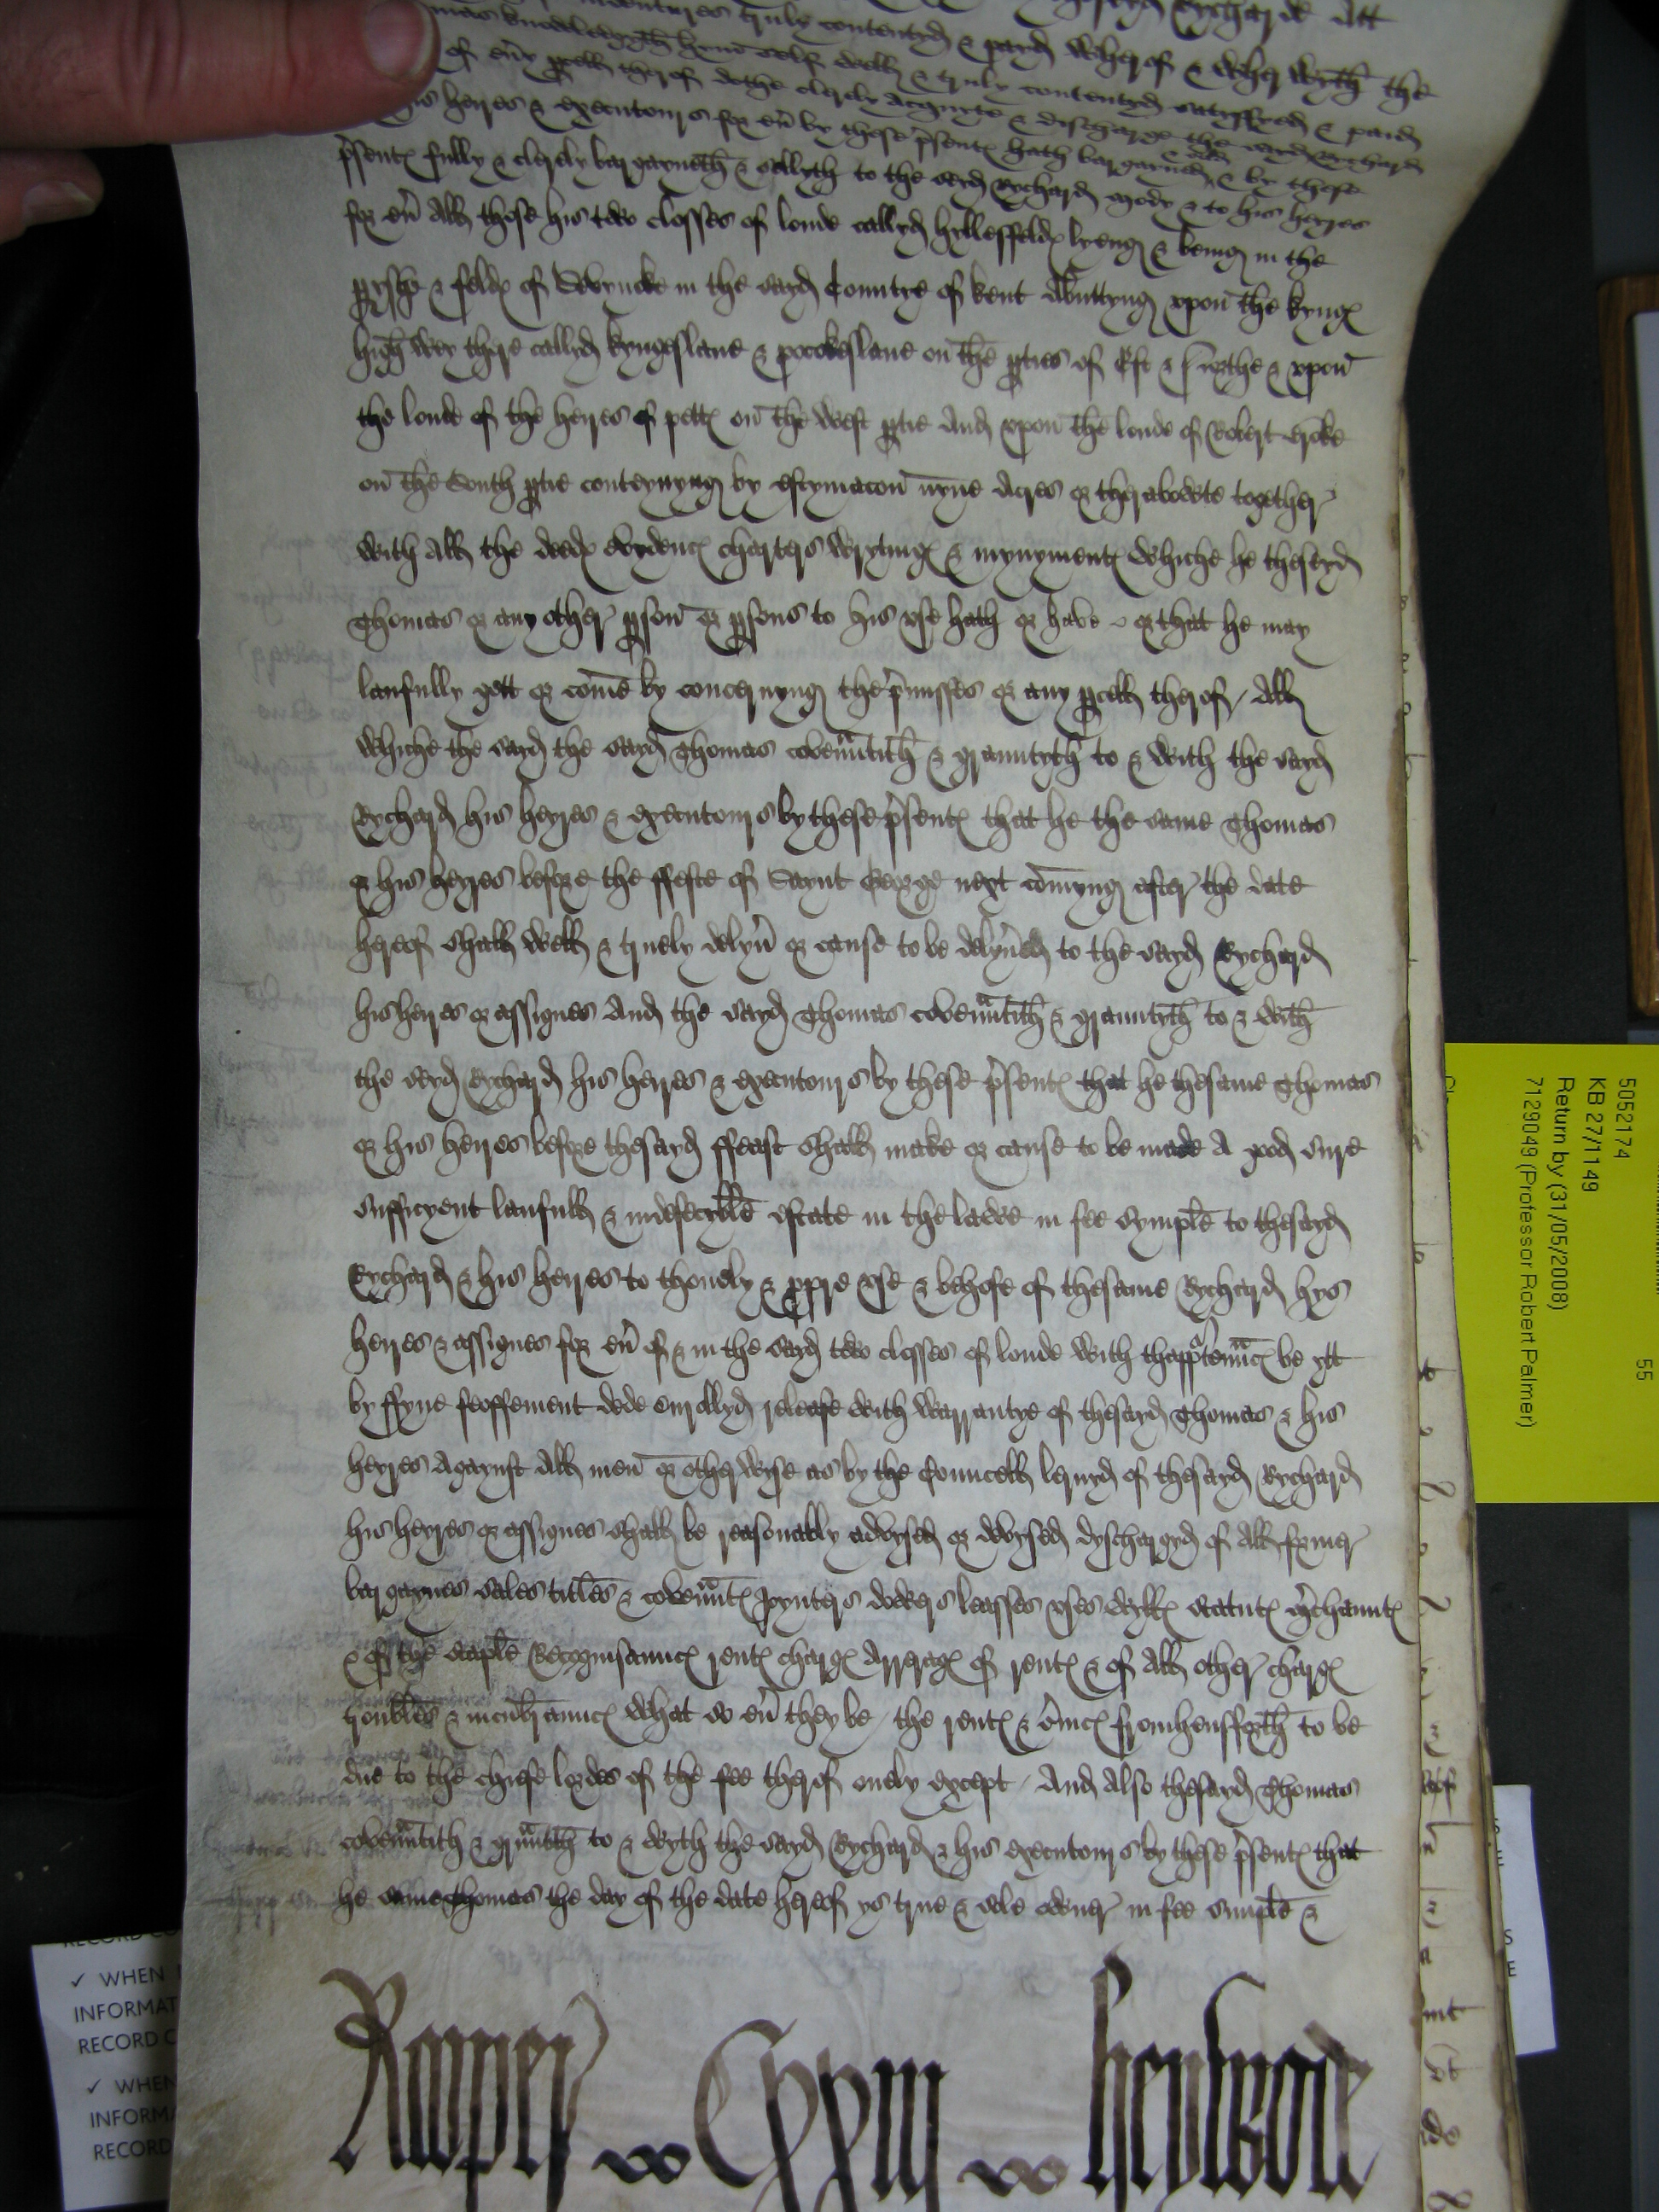 indentures truly contentyd & payd Wherof & Wher Wyth the
knowledgyth hym self well & truly contentyd satysffyed & paid
of eu'y p'cell therof dothe clerely acquyte & discharge the sayd Rychard
his heires & executours for eu' by these p'sentꝭ hath bargained & sold & by these
p'sentꝭ fully & clerely bargayneth & sellyth to the seyd Rychard mody & to his heyres
for eu' All those his two closses of londe callyd hyllesffeldꝭ lyeng & beinge in the
p'yshe & feldꝭ of in the sayd Countye of kent Abuttyng vpon the kyngꝭ
high wey there callyd kyngeslane & pocokeslane on the p'ties of Est & northe & vpon
the londe of the heyres of pettꝭ on the west p'tie And vpon the londe of Robert
on the South p'tie conteynyng by estymacon nyne Acres or therabowte together
with All the dedꝭ evydencꝭ charters wrytingꝭ & mynymentꝭ whiche he theseyd
Thomas or any other p'son or p'sons to his vse hath or have or that he may
laufully gett or come by concernyng the p'misses or any p'cell therof / All
whiche the sayd the sayd Thomas coven'ntith & grauntyth to & with the sayd
Rychard his heyres & executours by these p'sentꝭ that he the same Thomas
or his heyres before the ffeste of Saynt George next comyng after the date
hereof shall well & truely delyu' or cause to be delyu'ed to the sayd Rychard
his heires or assignes And the sayd Thomas coven'ntith & grauntyth to & with
the seyd Rychard his heires & executours by these p'sentꝭ that he thesame Thomas
or his heires before thesayd ffeast shall make or cause to be made A good sure
sufficyent laufull & indefecyble estate in the lawe in fee symple to thesayd
Rychard & his heires to thonely & pp're vse & behofe of thesame Rychard hys
heires & assignes for eu' of & in the sayd two closses of londe with thapp'ten'ncꝭ be ytt
by ffyne feoffement dede enrollyd release with warrantye of thesayd Thomas & his
heyres Agaynst All men or otherwyse as by the Councell lernyd of thesayd Rychard
his heyres or assignes shall be reasonably advysed or devysed dyschargyd of All former
bargaynes sales titles & coven'ntꝭ Joynters dowers leasses vses wyllꝭ statutꝭ m'chauntꝭ
& of the staple Recognisauncꝭ rentꝭ chargꝭ Arreragꝭ of rentꝭ & of All other chargꝭ
troubles & incu'brauncꝭ what so eu' they be / the rentꝭ & s'uicꝭ fromhensfforth to be
due to the chiefe lordes of the fee therof onely except / And Also thesayd Thomas
coven'ntith & gr'untith to & wyth the sayd Rychard & his executours by these p'sentꝭ that
he same Thomas the day of the date hereof ys true & sole owner in fee simple &
5052174
55
KB 27/1149
Return by (31/05/2008)
7129049 (Professor Robert Palmer)
✓ WHEN
INFORMAT
RECORD C
✓ WHEN
INFORMA
RECORD